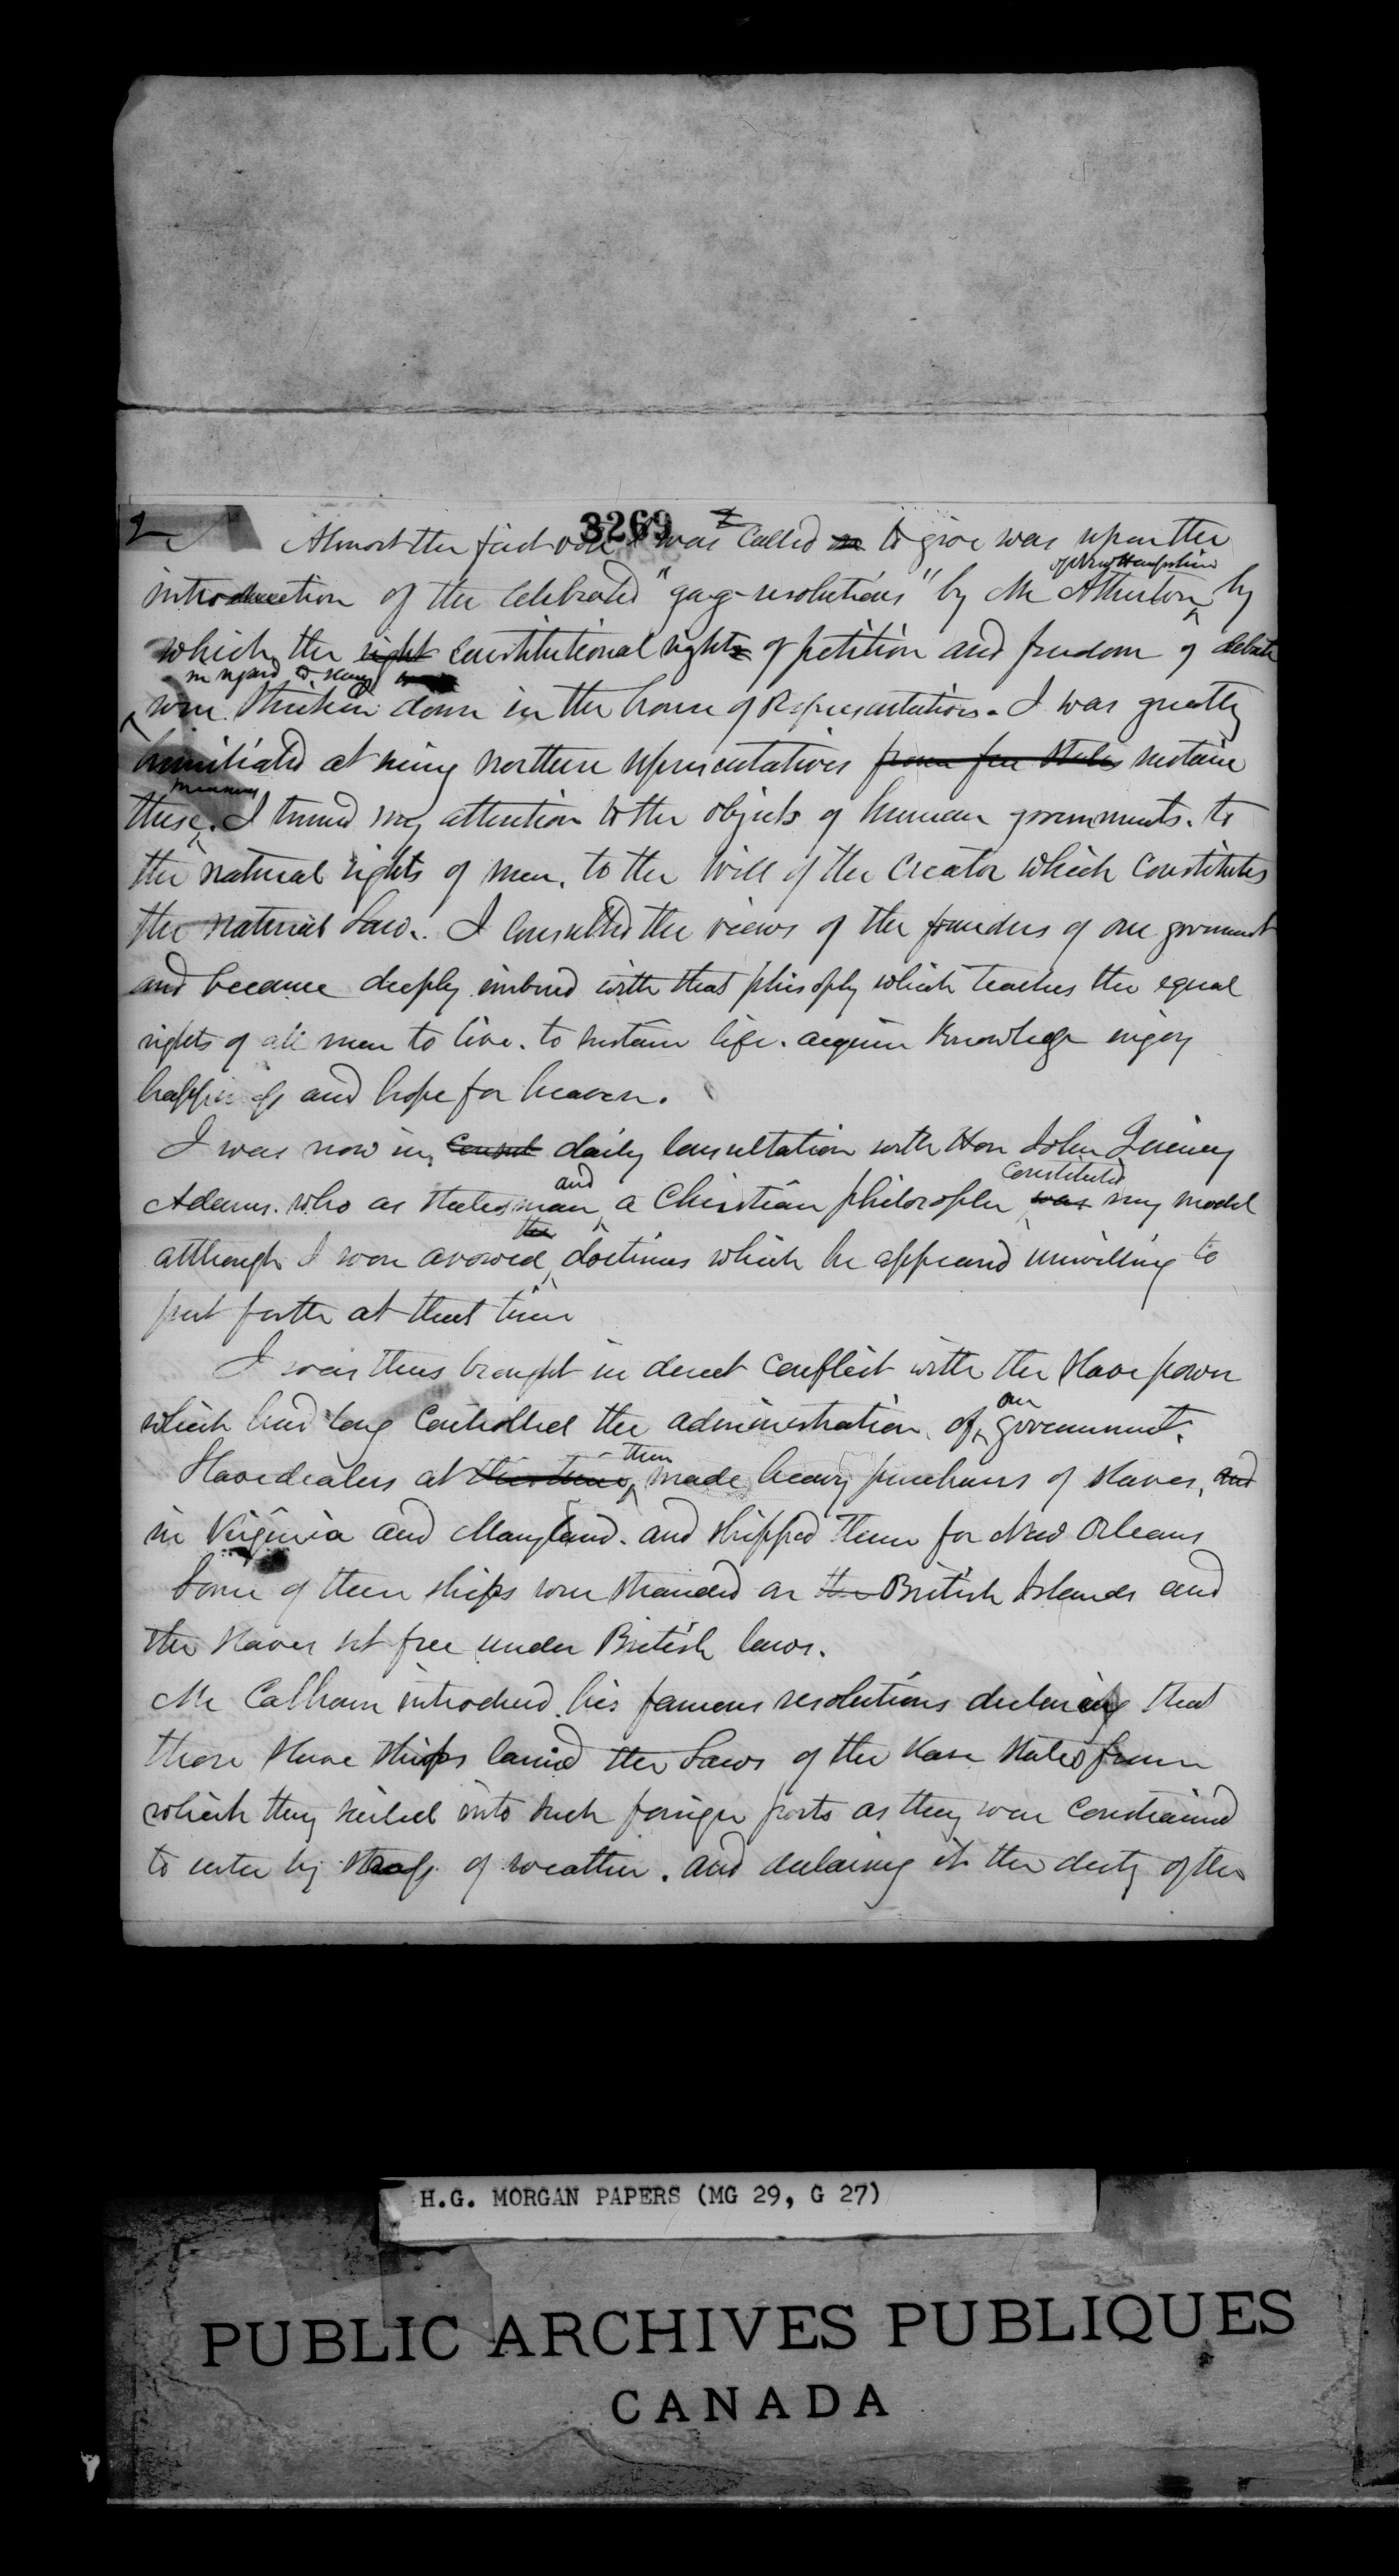 3269
2
Almost the first vote I was called to give was upon the
introduction of the celebrated "gag-resolutions" by Mr Atherton of New Hampshire by
which the right constitutional rights of petition and freedom of debate
in regard to slavery
were stricken down in the house of Representatives. I was greatly
humiliated at seeing northern representatives from free States sustain
these measures. I turned my attention to the objects of human governments. to
the natural rights of men. to the will of the Creator which constitutes
the natural Law. I consulted the views of the founders of our government
and became deeply imbued with that philosophy which teaches the equal
rights of all men to live. to sustain life. acquire knowledge enjoy
happiness and hope for heaven.
I was now in consul daily consultation with Hon John Quincy
Adams. who as statesman and a Christian philosopher was constituted my model
although I soon avowed the doctrines which he appeared unwilling to
put forth at that time
I was thus brought in direct conflict with the Slave power
which had long controlled the administration of our government.
Slavedealers at this time then made heavy purchases of slaves, and
in Virginia and Maryland. and shipped them for New Orleans
Some of these ships were stranded on the British Islands and
the slaves set free under British laws.
Mr Calhoun introduced his famous resolutions declaring that
those slave ships carried the Laws of the slave states from
which they sailed into such foreign ports as they were constrained
to enter by stress of weather. and declaring it the duty of the
H.G. MORGAN PAPERS (MG 29, G 27)
PUBLIC ARCHIVES PUBLIQUES
CANADA